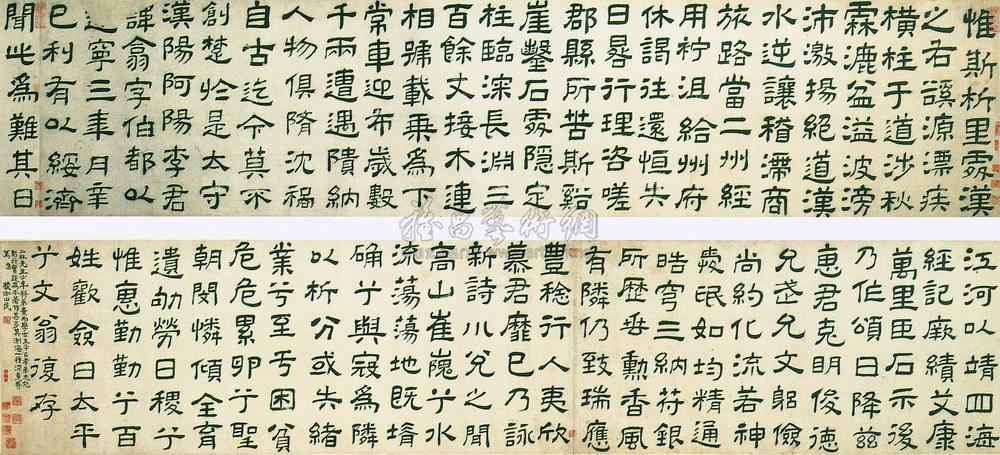 惟斯析里處漢
之右谿源漂疾
橫柱于道涉秋
霖漉盆溢波滂
沛激揚絕道漢
水逆讓稽滯商
旅路當二州經
用衿沮給州府
休謁往還恒失
日晷行理咨嗟
郡縣所苦斯谿
崖鑿石處隱定
柱臨深長淵三
百餘丈接木連
相號載乘為下
常車迎布歲數
千兩遭遇隤納
人物俱隋沈禍
自古迄今莫不
創楚於是太守
漢陽阿陽李君
諱翕字伯都以
建寧三年月辛
巳利有以綏濟
聞此為難其日
江河以靖四海
經記厥績艾康
萬里臣石示後
乃作頌曰降茲
惠君克明俊德
允武允文躬儉
尚約化流若神
氓如均精通
皓穹三納苻銀
所歷垂勳香風
有隣仍致瑞應
豐稔行人夷欣
慕君靡已乃詠
新詩川兌之閒
高山崔嵬兮水
流蕩蕩地既塉
确兮與寇為隣
以析分或失緒
業兮至于困貧
危危累卵兮聖
朝閔憐傾全育
遺劬勞曰稷兮
惟惠勤勤兮百
姓歡僉曰太平
兮文翁復存
藝術網